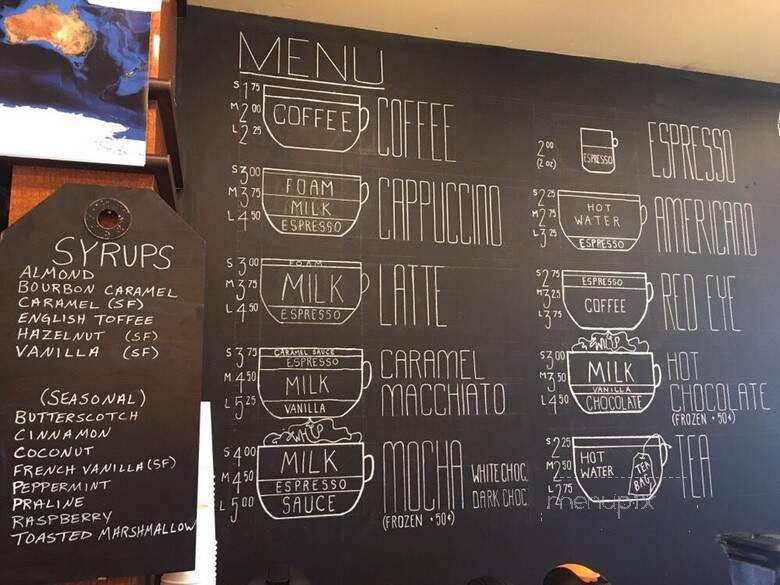 MENU
S 1 75
M 2 00
L 2 25
COFFEE
COFFEE
S 3 00
M 3 75
L 4 50
FOAM
MILK
ESPRESSO
CAPPUCCINO
S 3 00
M 3 75
L 4 50
FOAM
MILK
ESPRESSO
LATTE
S 3 75
M 4 50
L 5 25
CARAMEL SAUCE
ESPRESSO
MILK
VANILLA
CARAMEL
MACCHIATO
S 4 00
M 4 50
L 5 00
WHIP
MILK
ESPRESSO
SAUCE
MOCHA
WHITE CHOC.
DARK CHOC.
(FROZEN + 50¢)
2 00
(2 oz)
ESPRESSO
ESPRESSO
S 2 25
M 2 75
L 3 25
HOT
WATER
ESPRESSO
AMERICANO
S 2 75
M 3 25
L 3 75
ESPRESSO
COFFEE
RED EYE
S 3 00
M 3 50
L 4 50
WHIP
MILK
VANILLA
CHOCOLATE
HOT
CHOCOLATE
(FROZEN + 50¢)
S 2 25
M 2 50
L 2 75
HOT
WATER
TEA
BAG
TEA
SYRUPS
ALMOND
BOURBON CARAMEL
CARAMEL (SF)
ENGLISH TOFFEE
HAZELNUT (SF)
VANILLA (SF)
(SEASONAL)
BUTTERSCOTCH
CINNAMON
COCONUT
FRENCH VANILLA (SF)
PEPPERMINT
PRALINE
RASPBERRY
TOASTED MARSHMALLOW
menupix